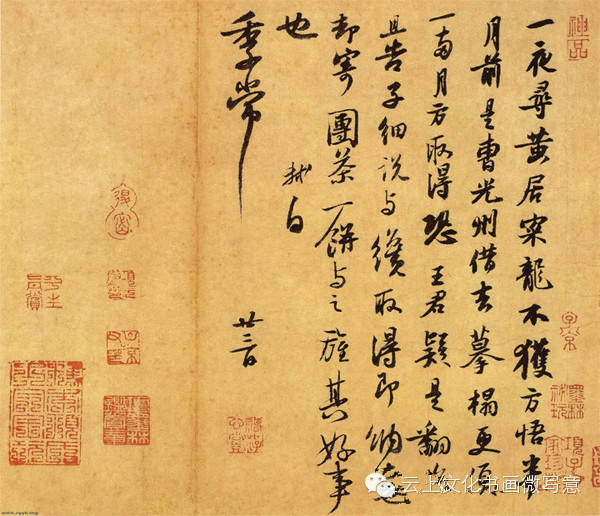 一夜尋黃居寀龍不獲方悟半
月前是曹光州借去摹搨更須
一兩月方取得恐王君疑是翻悔
且告子細說与纔取得即納去
却寄團茶一餅与之旌其好事
也
軾白
季常
廿三日
神品
平生真賞
云上文化书画微写意